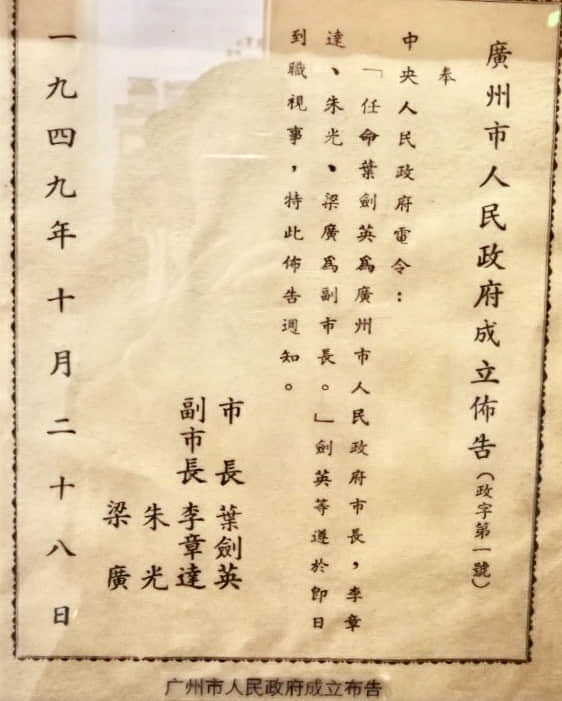 廣州市人民政府成立佈告(政字第一號)
奉
中央人民政府電令:
「任命葉劍英爲廣州市人民政府市長,李章
達、朱光、梁廣爲副市長。」劍英等遵於即日
到職視事,特此佈告週知。
市長 葉劍英
副市長 李章達
朱光
梁廣
一九四九年十月二十八日
广州市人民政府成立布告